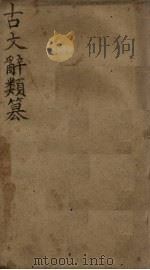 古文辭類纂
研狗
mtoou.info/